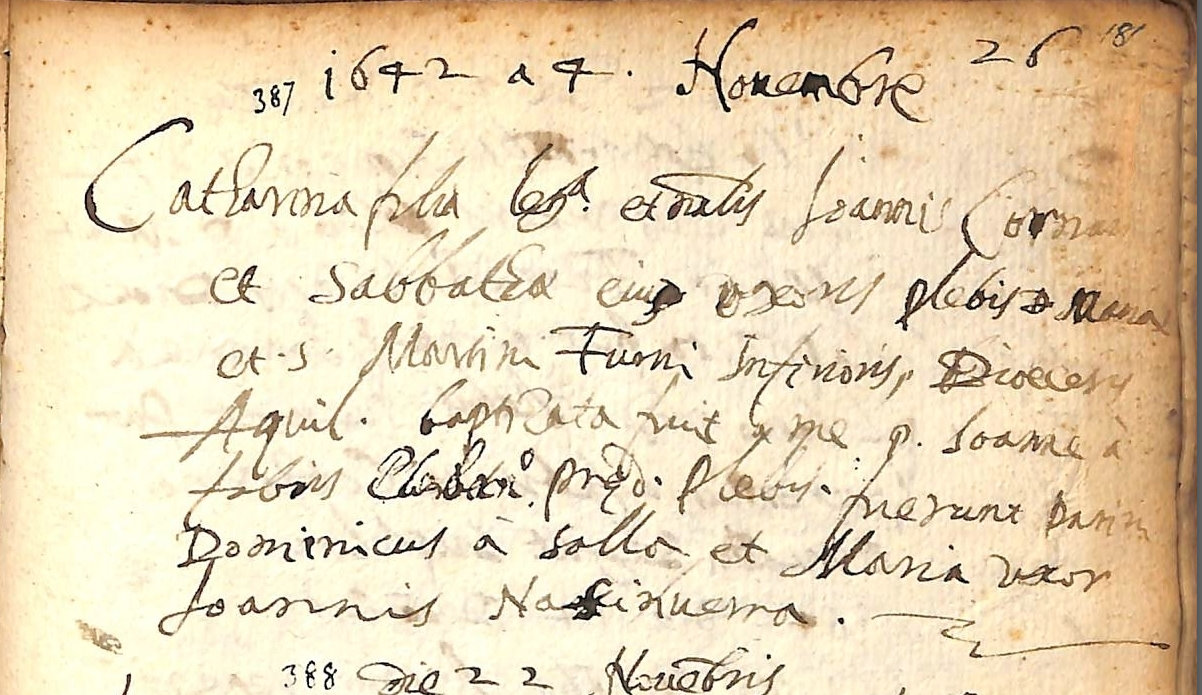 387 1642 a 4. Nouembre 26 181
Catharina filia leg.a et nalis Joannis
et Sabbathæ eius uxoris plebis S Mariæ
et S. Martini Furni Inferioris, Diocesis
Aquil. baptizata fuit p me p. Joanne à
fabris Plebano pred. Plebis. fuerunt
Dominicus à Solla et Maria uxor
Joannis
388 die 22 Nouebris